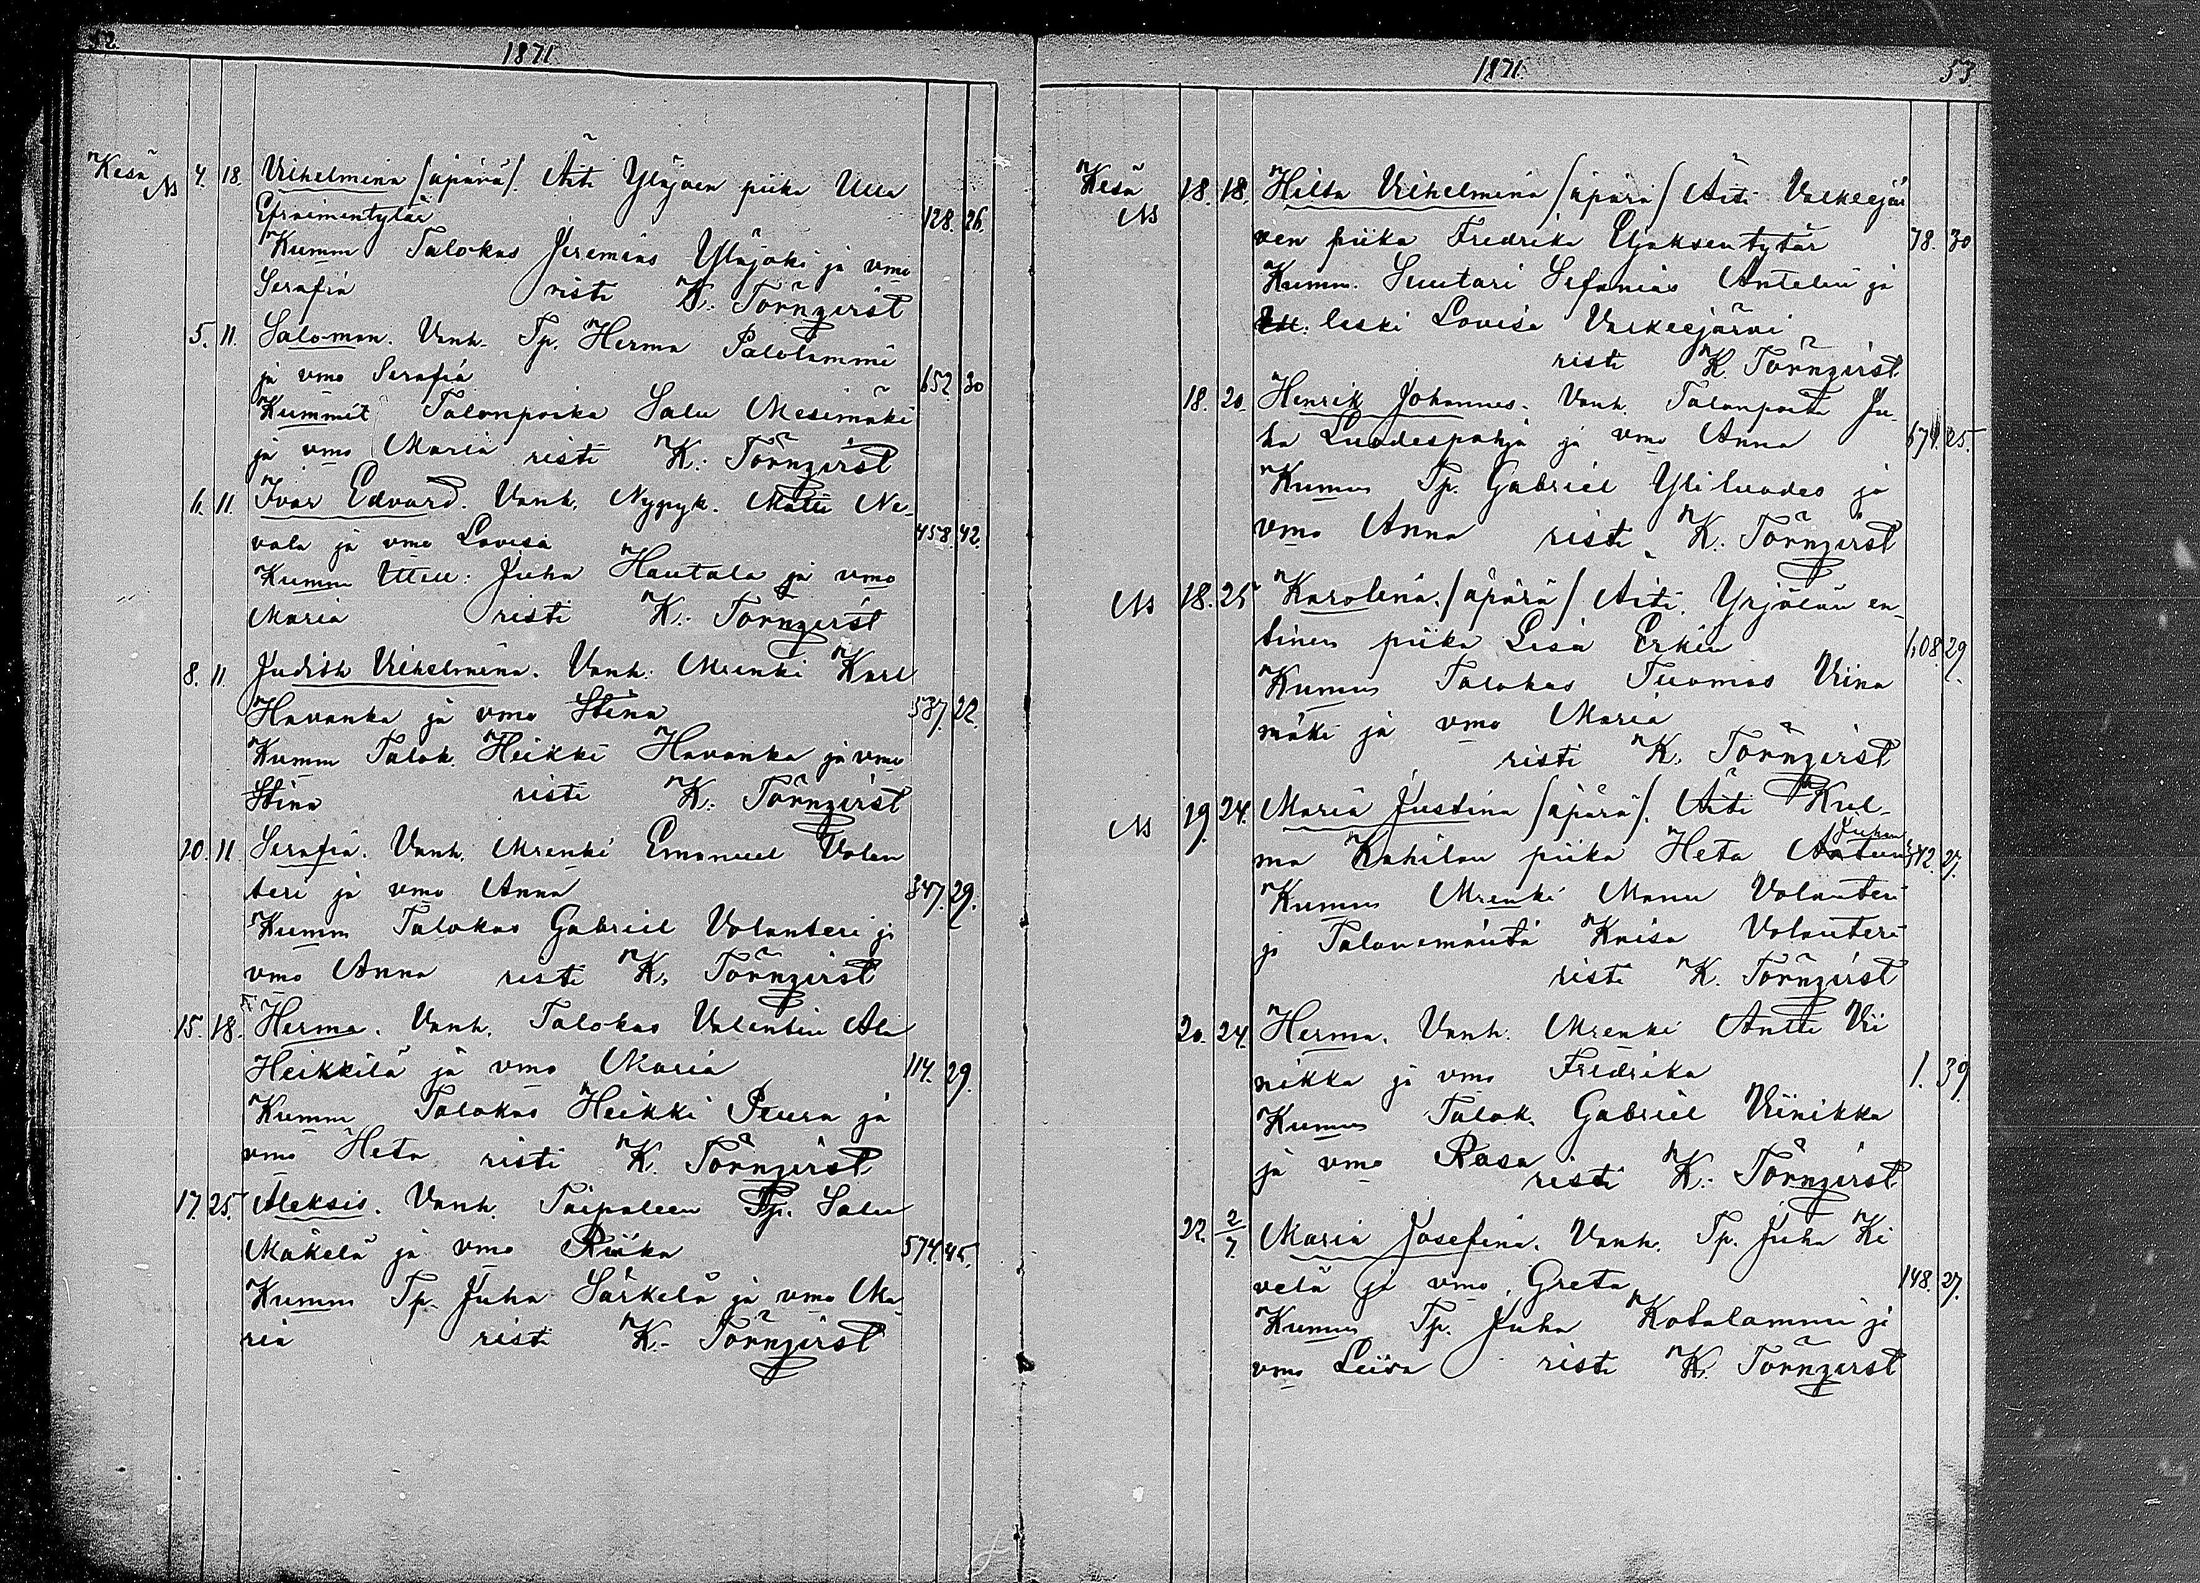 52
1871.
Kesä 4. 18. Vilhelmina /äpärä/. Äiti Ylijoen piika Ulla
Efraimentytär 128. 26.
Kumm Talokas Jeremias Ylijoki ja vmo
Serafia risti K. Törnqvist
5. 11. Salomon. Vanh. Tp. Herma Palolammi
ja vmo Serafia 652. 30
Kummit Talonpoika Salu Mesimäki
ja vmo Maria risti K. Törnqvist
6. 11. Ivar Edvard. Vanh. Nypyk. Matti Ne-
vala ja vmo Lovisa 458. 42.
Kumm Juha Hautala ja vmo
Maria risti K. Törnqvist
8. 11. Judith Vilhelmina. Vanh. Mrenki Karl
Havanka ja vmo Stina 587. 22.
Kumm Talok. Heikki Havanka ja vmo
Stina risti K. Törnqvist
10. 11. Serafia. Vanh. Mrenki Emanuel Volan
teri ja vmo Anna 847. 29.
Kumm Talokas Gabriel Volanteri ja
vmo Anna risti K. Törnqvist
15. 18. Herma. Vanh. Talokas Valentin Ala
Heikkilä ja vmo Maria 114. 29.
Kumm Talokas Heikki Peura ja
vmo Heta risti K. Törnqvist
17. 25. Aleksis. Vanh. Taipaleen Tp. Salu
Mäkelä ja vmo Riika 574. 45.
Kumm Tp. Juha Särkelä ja vmo Ma
ria risti K. Törnqvist
1871.
53
Kesä 18. 18. Hilta Vilhelmina /äpärä/ Äiti Valkeejär
ven piika Fredrika Eljaksentytär 78. 30
Kumm. Suutari Sefanias Antelin ja
leski Lovisa Valkeejärvi
risti K. Törnqvist
18. 20. Henrik Johannes. Vanh. Talonpoika Ju-
ha Luodespohja ja vmo Anna 674. 25.
Kumm Tp. Gabriel Yliluodes ja
vmo Anna risti K. Törnqvist
18. 25 Karolina. /äpärä/ Äiti. Yrjälän en-
tinen piika Lisa Erkin 108. 29.
Kumm Talokas Tuomas Viina
mäki ja vmo Maria
risti K. Törnqvist
19. 24. Maria Justina /äpärä/. Äiti Kul-
ma Kahilan piika Heta Juhan 342. 27.
Kumm Mrenki Manu Volanteri
ja Talonemäntä Kaisa Volanteri
risti K. Törnqvist
20. 24. Herma. Vanh. Mrenki Antti Vii
nikka ja vmo Fredrika 1. 39.
Kumm Talok. Gabriel Viinikka
ja vmo Rosa risti K. Törnqvist
22. 2/7. Maria Josefina. Vanh. Tp. Juha Ki
velä ja vmo Greta 148. 27.
Kumm Tp. Juha Kotalammi ja
vmo Leisa risti K. Törnqvist